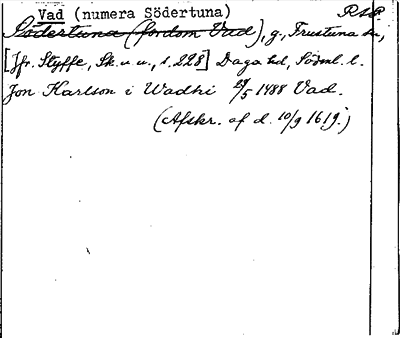 Vad (numera Södertuna) RAP
Södertuna (fordom Vad), g., Frustuna sn,
[Jfr. Styffe, Sk. u. u., s. 228] Daga hd, Södml. l.
Jon Karlson i Wadhi 29/5 1488 Vad.
(Afskr. af d. 10/9 1619.)